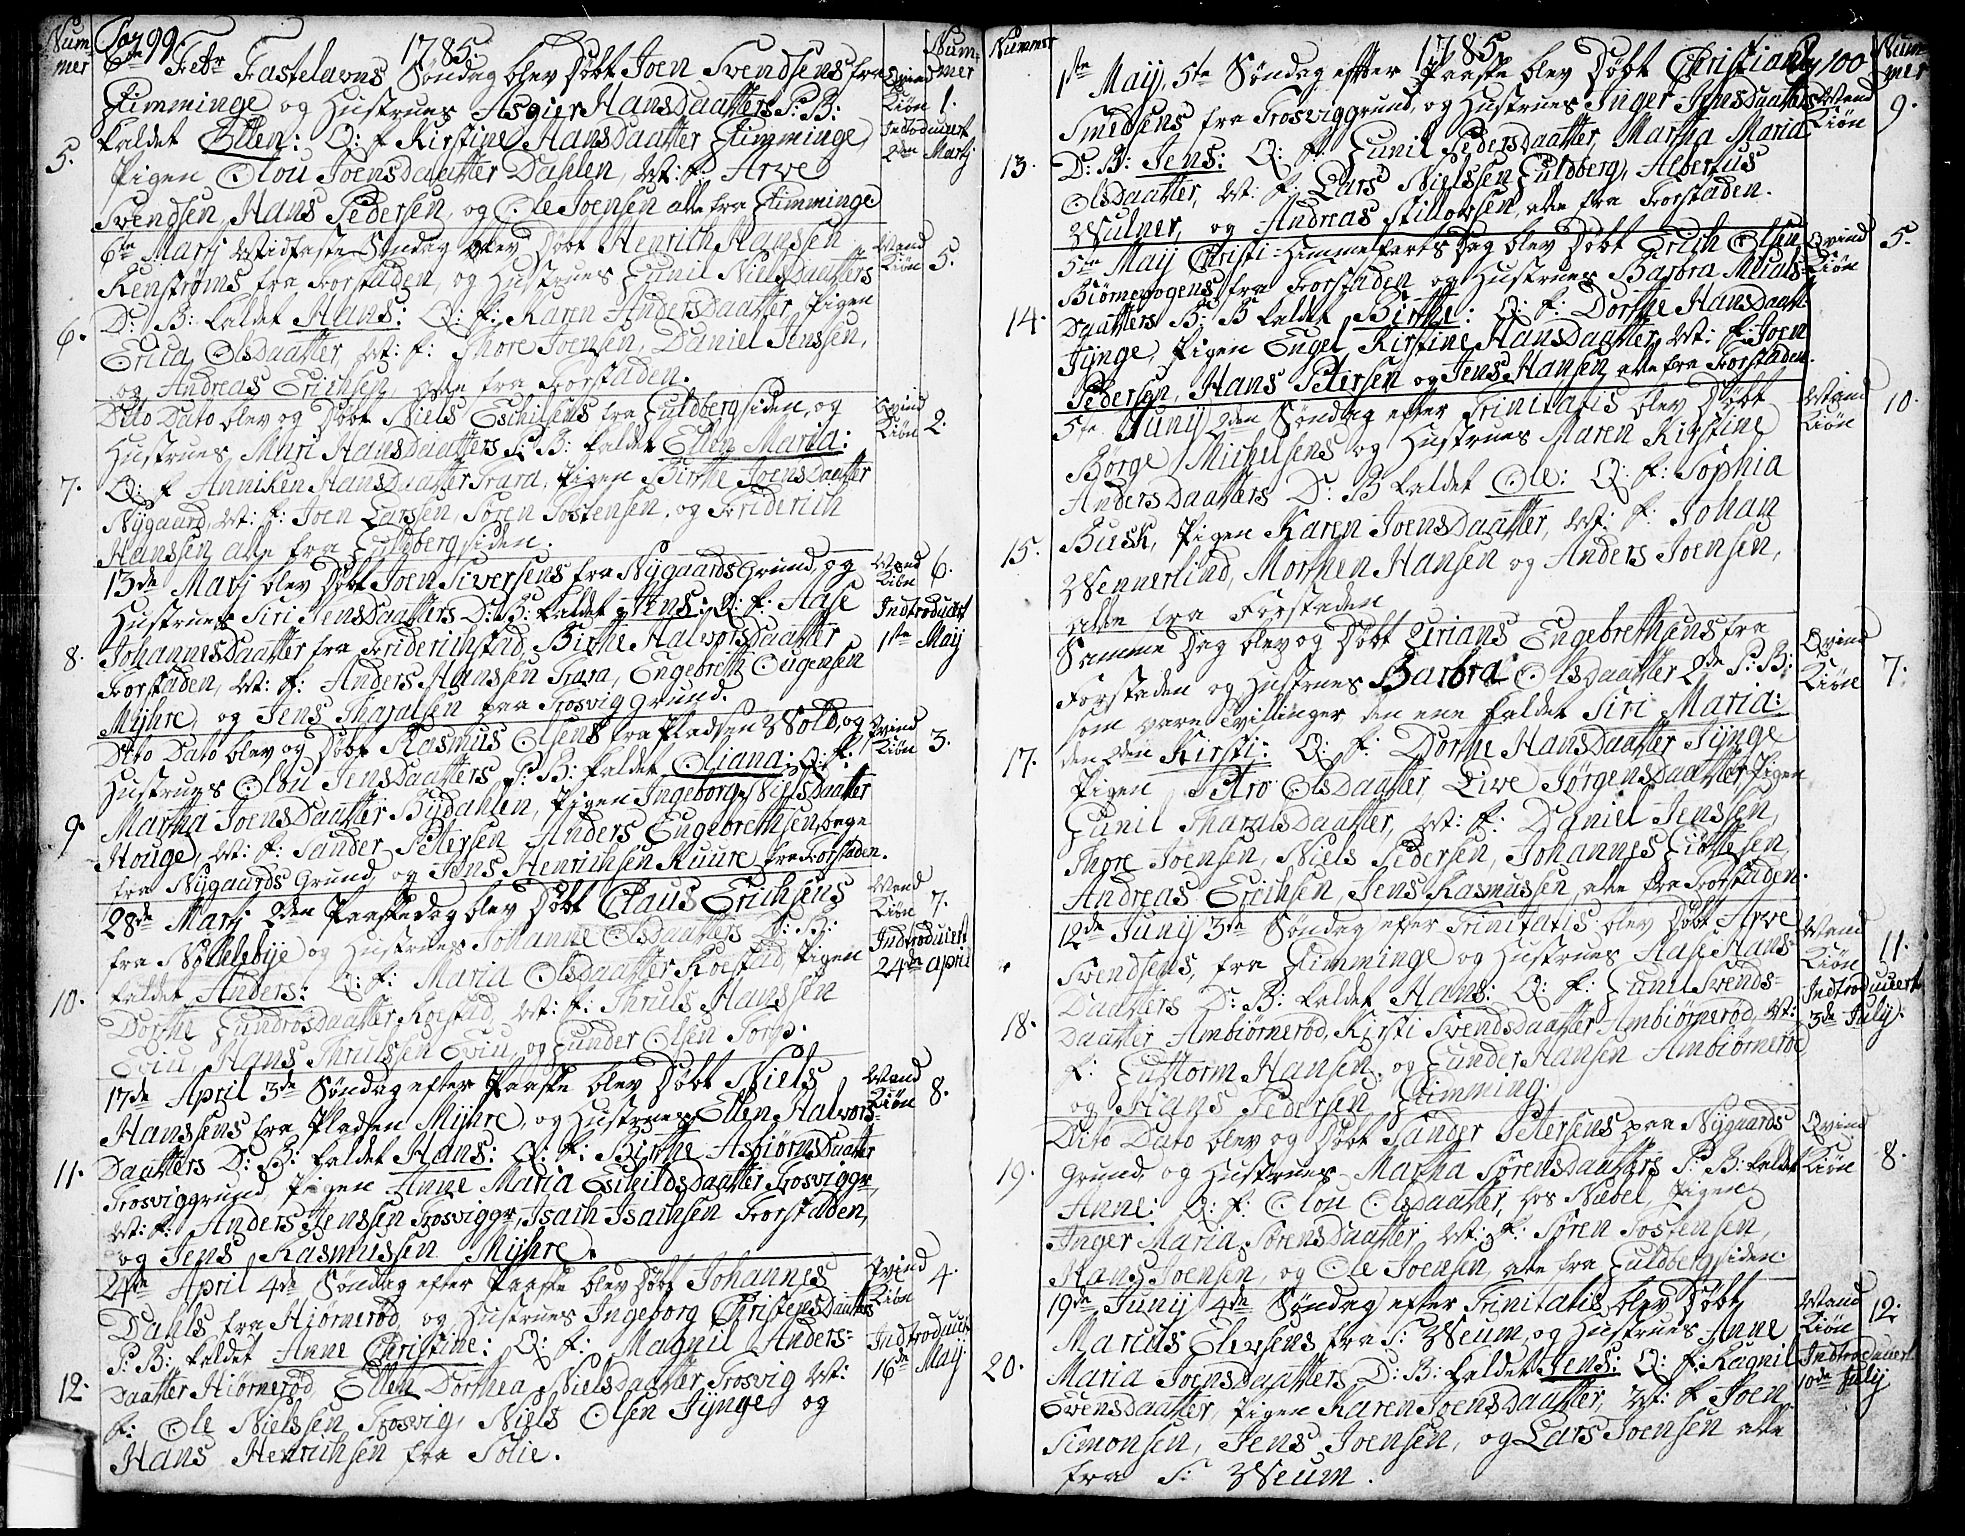 Num-
mer
Pag 99
1785.
Num-
mer
6te Febr Fastelavns Søndag blev Døbt Joen Svendsens fra
Glimminge og Hustrues Asgier HansDaatters P: B:
kaldet Ellen: Q: f Kirstine HansDaatter Glimminge,
Pigen Olou JoensDaatter Dahlen, M: f: Arve
Svendsen, Hans Pedersen, og Ole Joensen alle fra Glimminge
5.
Qvind
Kiøn 1.
Indtroducert
2den Martj
6te Martj Midfaste Søndag blev Døbt Henrich Hanssen
Kenstrøms fra Forstaden, og Hustrues Gunil NielsDaatters
D: B: kaldet Hans: Q: f: Karen AndersDaatter Pigen
Erica OlsDaatter M: f: Thore Joensen, Daniel Jenssen,
og Andreas Erichsen, alle fra Forstaden.
6.
Mand
Kiøn 5.
Dito Dato blev og Døbt Niels Eschilsens fra Guldbergsiden, og
Hustrues Mari HansDaatters P: B: kaldet Ellen Maria:
Q: f Anniken HansDaatter Trara, Pigen Birthe JoensDaatter
Nygaard, M: f: Joen Larssen, Søren Tostensen, og Friderich
Hanssen alle fra Guldbergsiden.
7.
Qvind
Kiøn 2.
13de Martj blev Døbt Joen Siversens fra Nygaards Grund og
Hustrues Siri JensDaatters D: B: kaldet Jens: Q: f: Aase
JohannesDaatter fra Friderichstad, Birthe HalvorsDaatter
Forstaden, M: f: Anders Hanssen Trara, Engebreth Ougensen
Myhre, og Jens Tharalsen paa Trosviggrund.
8.
Mand
Kiøn 6.
Indtroducert
1ste Maij
Dito Dato blev og Døbt Rasmus Olsens fra Pladsen Wold, og
Hustrues Olou JensDaatters P: B: kaldet Oliana: Q: f:
Martha JoensDaatter Bydahlen, Pigen Ingeborg NielsDaatter
Houge, M: f: Sander Petersen Anders Engebrethsen, bege
fra Nygaards Grund, og Jens Henrichsen Kuure fra Forstaden.
9.
Qvind
Kiøn 3.
28de Martj 2den Paaskedag blev Døbt Claus Erichsens
fra Nøklebye og Hustrues Johanne OlsDaatters D: B:
kaldet Anders: Q: f: Maria OlsDaatter Roestad, Pigen
Dorthe GundrosDaatter Roestad, M: f: Thruls Hanssen
Eviu, Hans Thrulssen Eviu, og Gunder Olsen Torp.
10.
Mand
Kiøn 7.
Indtroducert
24de April
17de April 3de Søndag efter Paaske blev Døbt Niels
Hanssens fra Pladsen Myhre, og Hustrues Ellen Halvors-
Daatters D: B: kaldet Hans: Q: f: Birthe AsbiørnsDaatter
Trosviggrund, Pigen Anne Maria EschildsDaatter Trosviggr,
M: f: Anders Jenssen Trosviggr, Isach Isachsen Forstaden,
og Jens Rasmussen Myhre.
11.
Mand
Kiøn 8.
24de April 4de Søndag efter Paaske blev Døbt Johannes
Dahls fra Hiørnerød, og Hustrues Ingeborg ChristensDaatters
P: B: kaldet Anne Christine: Q: f: Magnil Anders=
Daatter Hiørnerød, Ellen Dorthea NielsDaatter Trosvig M:
f: Ole Nielssen Trosvig, Niels Olsen Tynge, og
Hans Henrichsen fra Solie.
12.
Qvind
Kiøn 4.
Indtroducert
16de Maij
Nummer
1785.
Pag 100
Num-
mer
1ste Maij, 5te Søndag efter Paaske blev Døbt Christian
Smedsens fra Trosviggrund, og Hustrues Inger JensDaatters
D: B: Jens: Q: f: Gunil PedersDaatter, Martha Maria
OlsDaatter, M: f: Lars Nielssen Guldberg, Albertus
Wulner, og Andreas Stillovsen, alle fra Forstaden.
13.
Mand
Kiøn 9.
5te Maij Christi Himmelfarts Dag blev Døbt Erich Olsen
fra Forstaden og Hustrues Barbra
Daatters P: B kaldet Birthe: Q: f: Dorthe HansDaatter
Tynge, Pigen Engel Kirstine HansDaatter, M: f: Joen
Pedersen, Hans Petersen og Jens Hansen alle fra Forstaden.
14.
Qvind
Kiøn 5.
5te Junij 2den Søndag efter Trinitatis blev Døbt
Børge Michelsens og Hustrues Maren Kirstine
AndersDaatters D: B kaldet Ole: Q: f: Sophia
Busk, Pigen Karen JoensDaatter, M: f: Johan
Wennerlind, Morthen Hansen og Anders Joensen,
alle fra Forstaden
15.
Mand
Kiøn 10.
Samme Dag blev og Døbt Urians Engebrethsens fra
Forstaden og Hustrues Barbra OlsDaatter 2de P: B:
som vare Tvillinger den ene kaldet Siri Maria:
den 2den Kirsti: Q: f: Dorthe HansDaatter Tynge
Pigen Petro OlsDaatter, Live JørgensDaatter, Pigen
Gunil TharalsDaatter, M: f: Daniel Jenssen,
Thore Joensen, Niels Pedersen, Johannes Giøttesen,
Andreas Erichsen, Jens Rasmussen, alle fra Forstaden.
17.
Qvind
Kiøn 7.
12de Junij 3de Søndag efter Trinitatis blev Døbt Arve
Svendsens, fra Glimminge og Hustrues Aase Hans-
Daatters D: B: kaldet Hans: Q: f: Gunil Svends-
Daatter Ambiørnerød, Kirsti SvendsDaatter Ambiørnerød, M:
f: Guttorm Hansen, og Gunder Hansen Ambiørnerød
og Hans Pedersen Glimming.
18.
Mand
Kiøn 11.
Indtroducert
3de Julij.
Dito Dato blev og Døbt Sander Petersens paa Nygaards
Grund og Hustrues Martha SørensDaatters P: B: kaldet
Anne: Q: f: Olou OlsDaatter, hos Nabel, Pigen
Inger Maria SørensDaatter, M: f: Søren Tostensen,
Hans Joensen, og Ole Joensen, alle fra Guldbergsiden.
19.
Qvind
Kiøn 8.
19de Junij 4de Søndag efter Trinitatis blev Døbt
Marcus Elevsens fra S: Weum, og Hustrues Anne
Maria JoensDaatters D: B: kaldet Jens: Q: f: Ragnil
EvensDaatter, Pigen Karen JoensDaatter, M: f Joen
Simonsen, Jens Joensen, og Lars Joensen alle
fra S: Weum.
20.
Mand
Kiøn 12.
Indtroducert
10de July